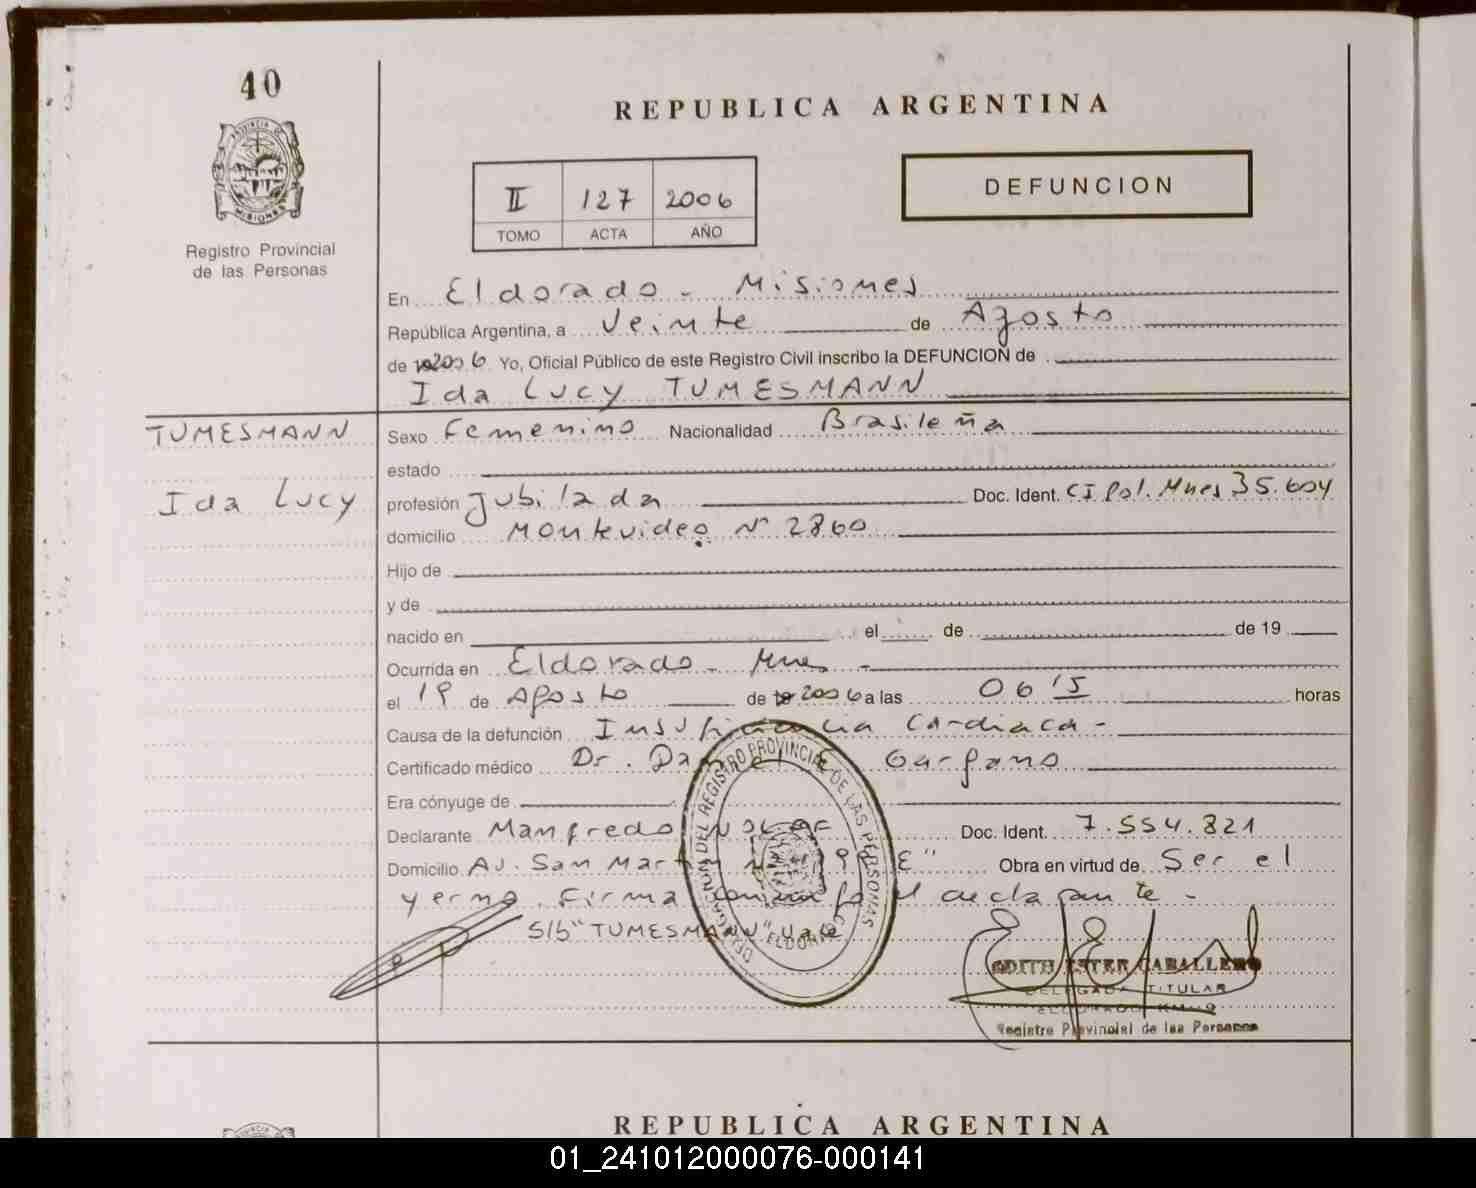 40
REPUBLICA ARGENTINA
PROVINCIA DE
MISIONES
Registro Provincial
de las Personas
II 127 2006
TOMO ACTA AÑO
DEFUNCION
En Eldorado - Misiones
República Argentina, a Veinte de Agosto
de 2006 Yo, Oficial Público de este Registro Civil inscribo la DEFUNCION de
Ida Lucy TUMESMANN
TUMESMANN
Ida Lucy
Sexo Femenino Nacionalidad Brasileña
estado
profesión Jubilada Doc. Ident. CI Pol. Mnes 35.604
domicilio Montevideo Nº 2860
Hijo de
y de
nacido en el de de 19
Ocurrida en Eldorado - Mnes -
el 19 de Agosto de 2006 a las 06'15 horas
Causa de la defunción Insuficiencia Cardiaca -
Certificado médico Dr. Gargano
Era cónyuge de
Declarante Manfredo Doc. Ident. 7.554.821
Domicilio Av. San Martin E" Obra en virtud de Ser el
yerno. Firma el declarante -
S/b "TUMESMANN" Vale
DELEGACION DEL REGISTRO PROVINCIAL DE LAS PERSONAS
ELDORADO
EDITH ESTER CABALLERO
DELEGADA TITULAR
ELDORADO KM. 9
Registro Provincial de las Personas
REPUBLICA ARGENTINA
01_241012000076-000141